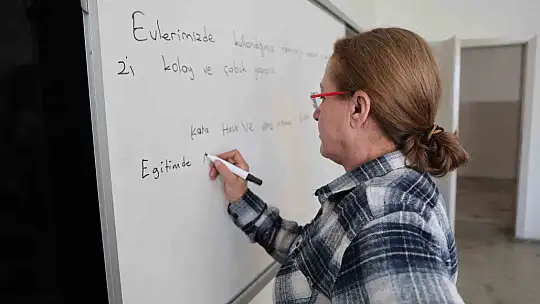 Evlerimizde kullandığımız
2'i kolay ve çabuk yaparız
kara Hava ve
Egitimde